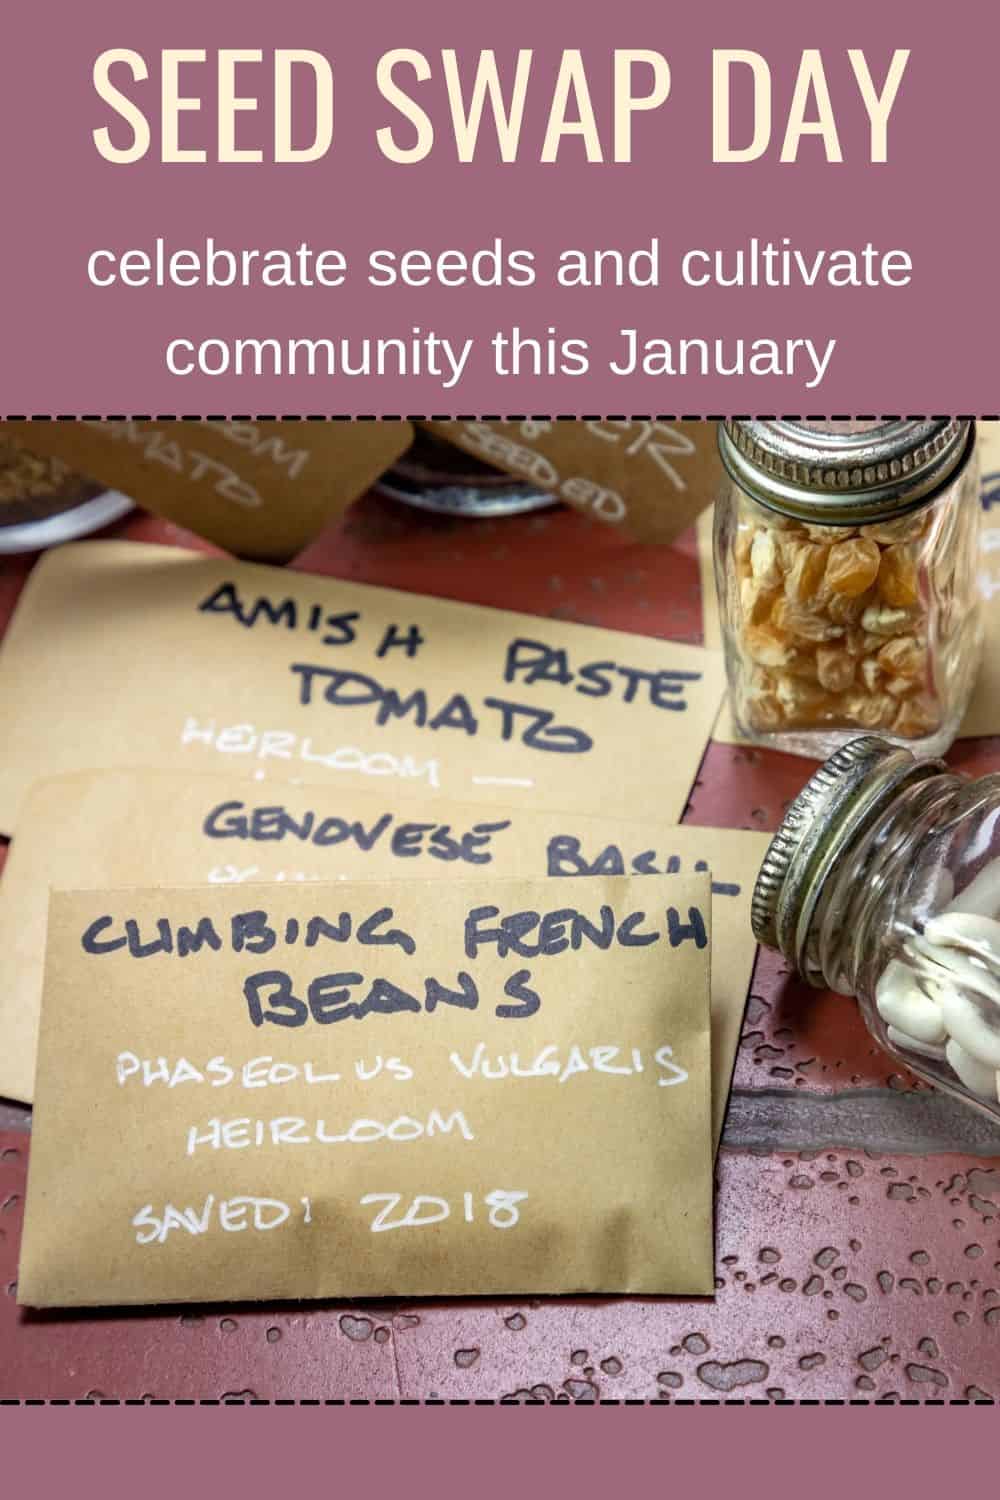 SEED SWAP DAY
celebrate seeds and cultivate
community this January
TOMATO
SEEDED
AMISH PASTE
TOMATO
HEIRLOOM —
GENOVESE BASIL
CLIMBING FRENCH
BEANS
PHASEOLUS VULGARIS
HEIRLOOM
SAVED: 2018